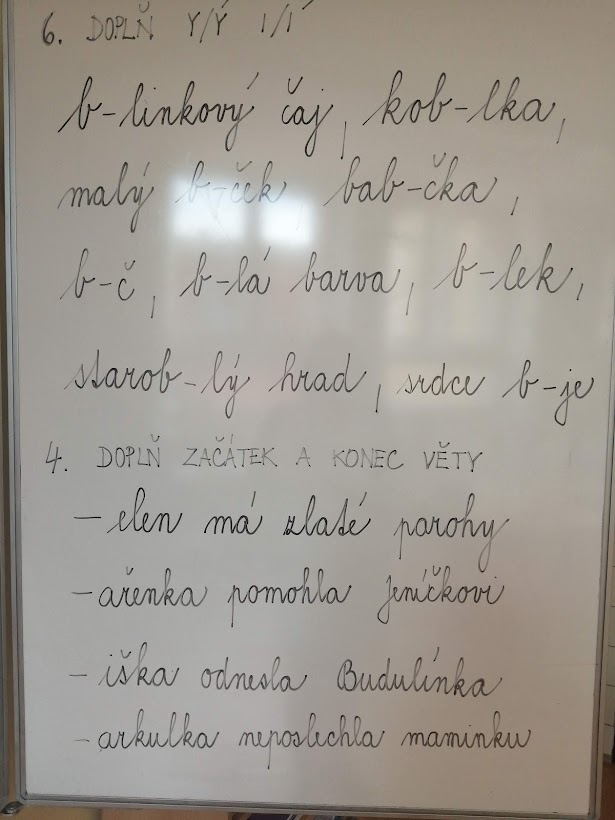 6. DOPLŇ Y/Ý I/Í
b-linkový čaj, kob-lka,
malý b-ček, bab-čka,
b-č, b-lá barva, b-lek,
starob-lý hrad, srdce b-je
4. DOPLŇ ZAČÁTEK A KONEC VĚTY
-elen má zlaté parohy
-ařenka pomohla Jeníčkovi
-iška odnesla Budulínka
-arkulka neposlechla maminku